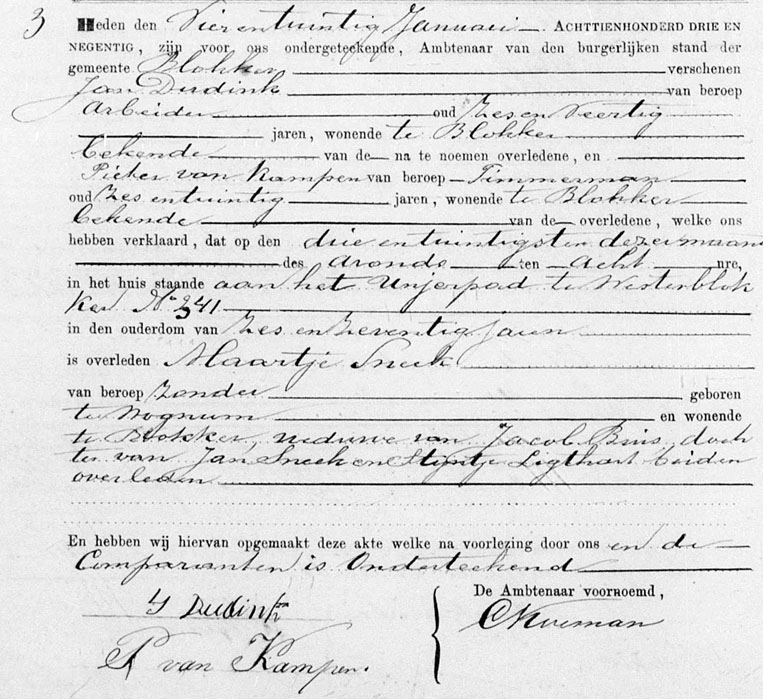 3
Heden den Vierentwintig Januari ACHTTIENHONDERD DRIE EN
NEGENTIG, zijn voor ons ondergeteekende, Ambtenaar van den burgerlijken stand der
gemeente Blokker verschenen
Jan Dudink van beroep
Arbeider oud Zes en Veertig
jaren, wonende te Blokker
bekende van de na te noemen overledene, en
Pieter van Kampen van beroep Timmerman
oud Zes entwintig jaren, wonende te Blokker
bekende van de overledene, welke ons
hebben verklaard, dat op den drie entwintigsten dezer maand
des avonds ten acht ure,
in het huis staande aan het Unjerpad te Westerblok
ker No 341
in den ouderdom van Zes en Zeventig jaren
is overleden Maartje Sneek
van beroep Zonder geboren
te Wognum en wonende
te Blokker, weduwe van Jacob Buis, doch
ter van Jan Sneek en Stijntje Ligthart beiden
overleden
En hebben wij hiervan opgemaakt deze akte welke na voorlezing door ons en de
Comparanten is Onderteekend
De Ambtenaar voornoemd,
J Dudink
P van Kampen.